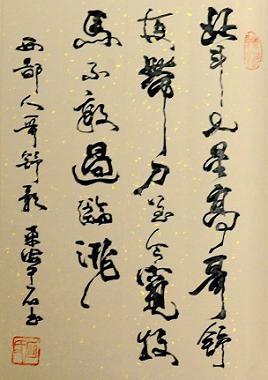 北斗七星高哥舒
夜帶刀至今窺牧
馬不敢過臨洮
西部人哥舒歌